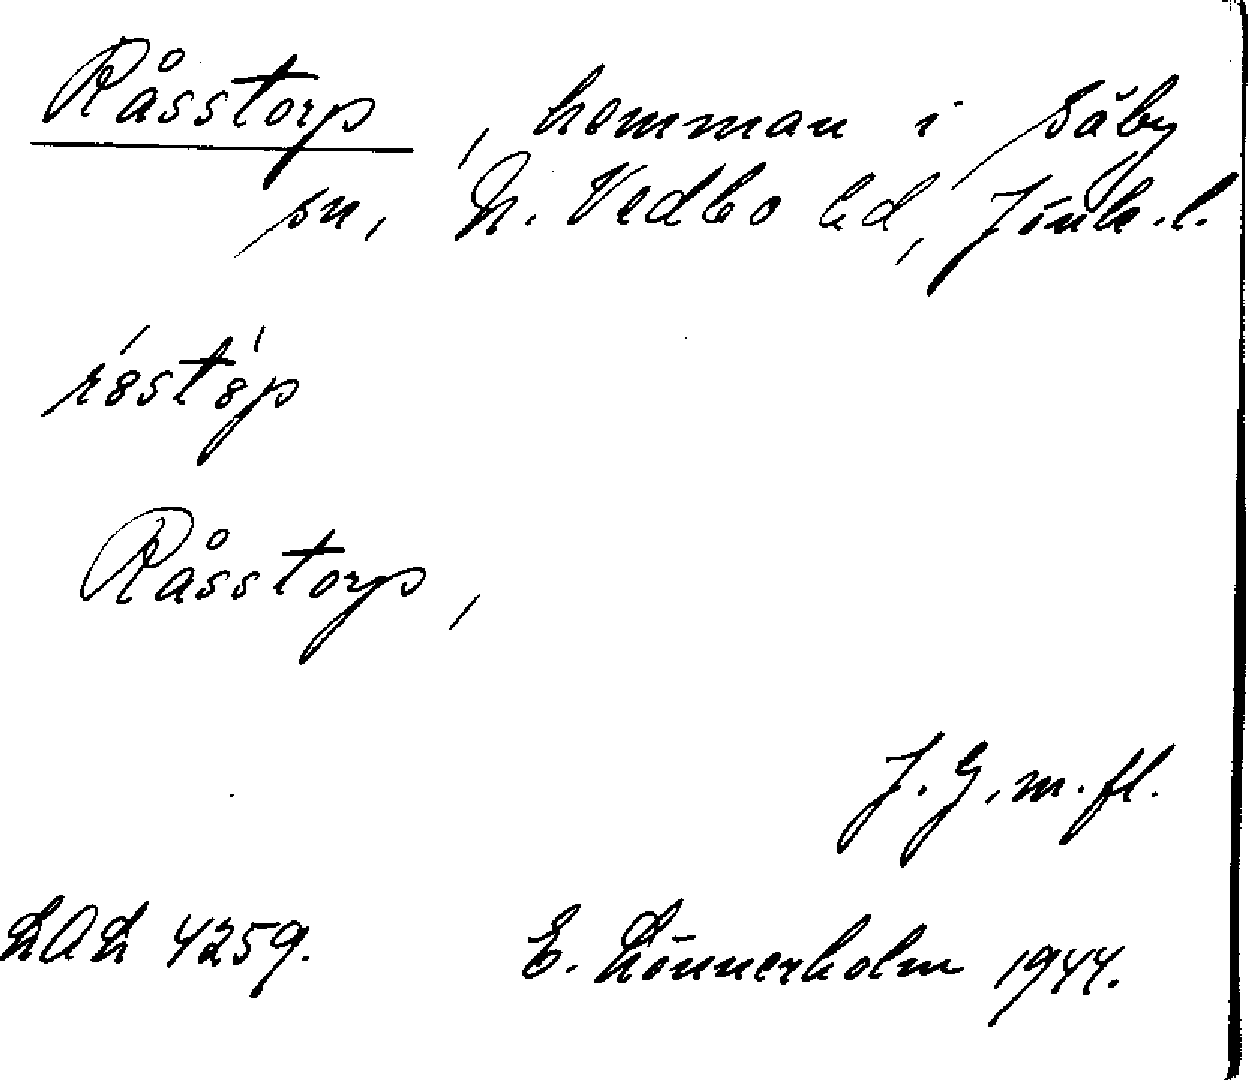 Råsstorp, hemman i Säby
sn, N. Vedbo hd, Jönk. l.
Råsstorp,
J. G. m. fl.
LAL 4259. E. Lönnerholm 1944.